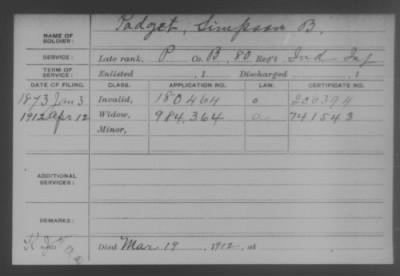 Padget, Simpson B.
NAME OF SOLDIER:
SERVICE: Late rank, P Co. B, 80 Reg't Ind. Inf
TERM OF SERVICE: Enlisted , 1 Discharged , 1
DATE OF FILING. CLASS. APPLICATION NO. LAW. CERTIFICATE NO.
1873 Jan 3 Invalid, 180464 a 200394
1912 Apr 12 Widow, 984,364 a 741543
Minor,
ADDITIONAL SERVICES:
REMARKS:
Died Mar 19, 1912, at